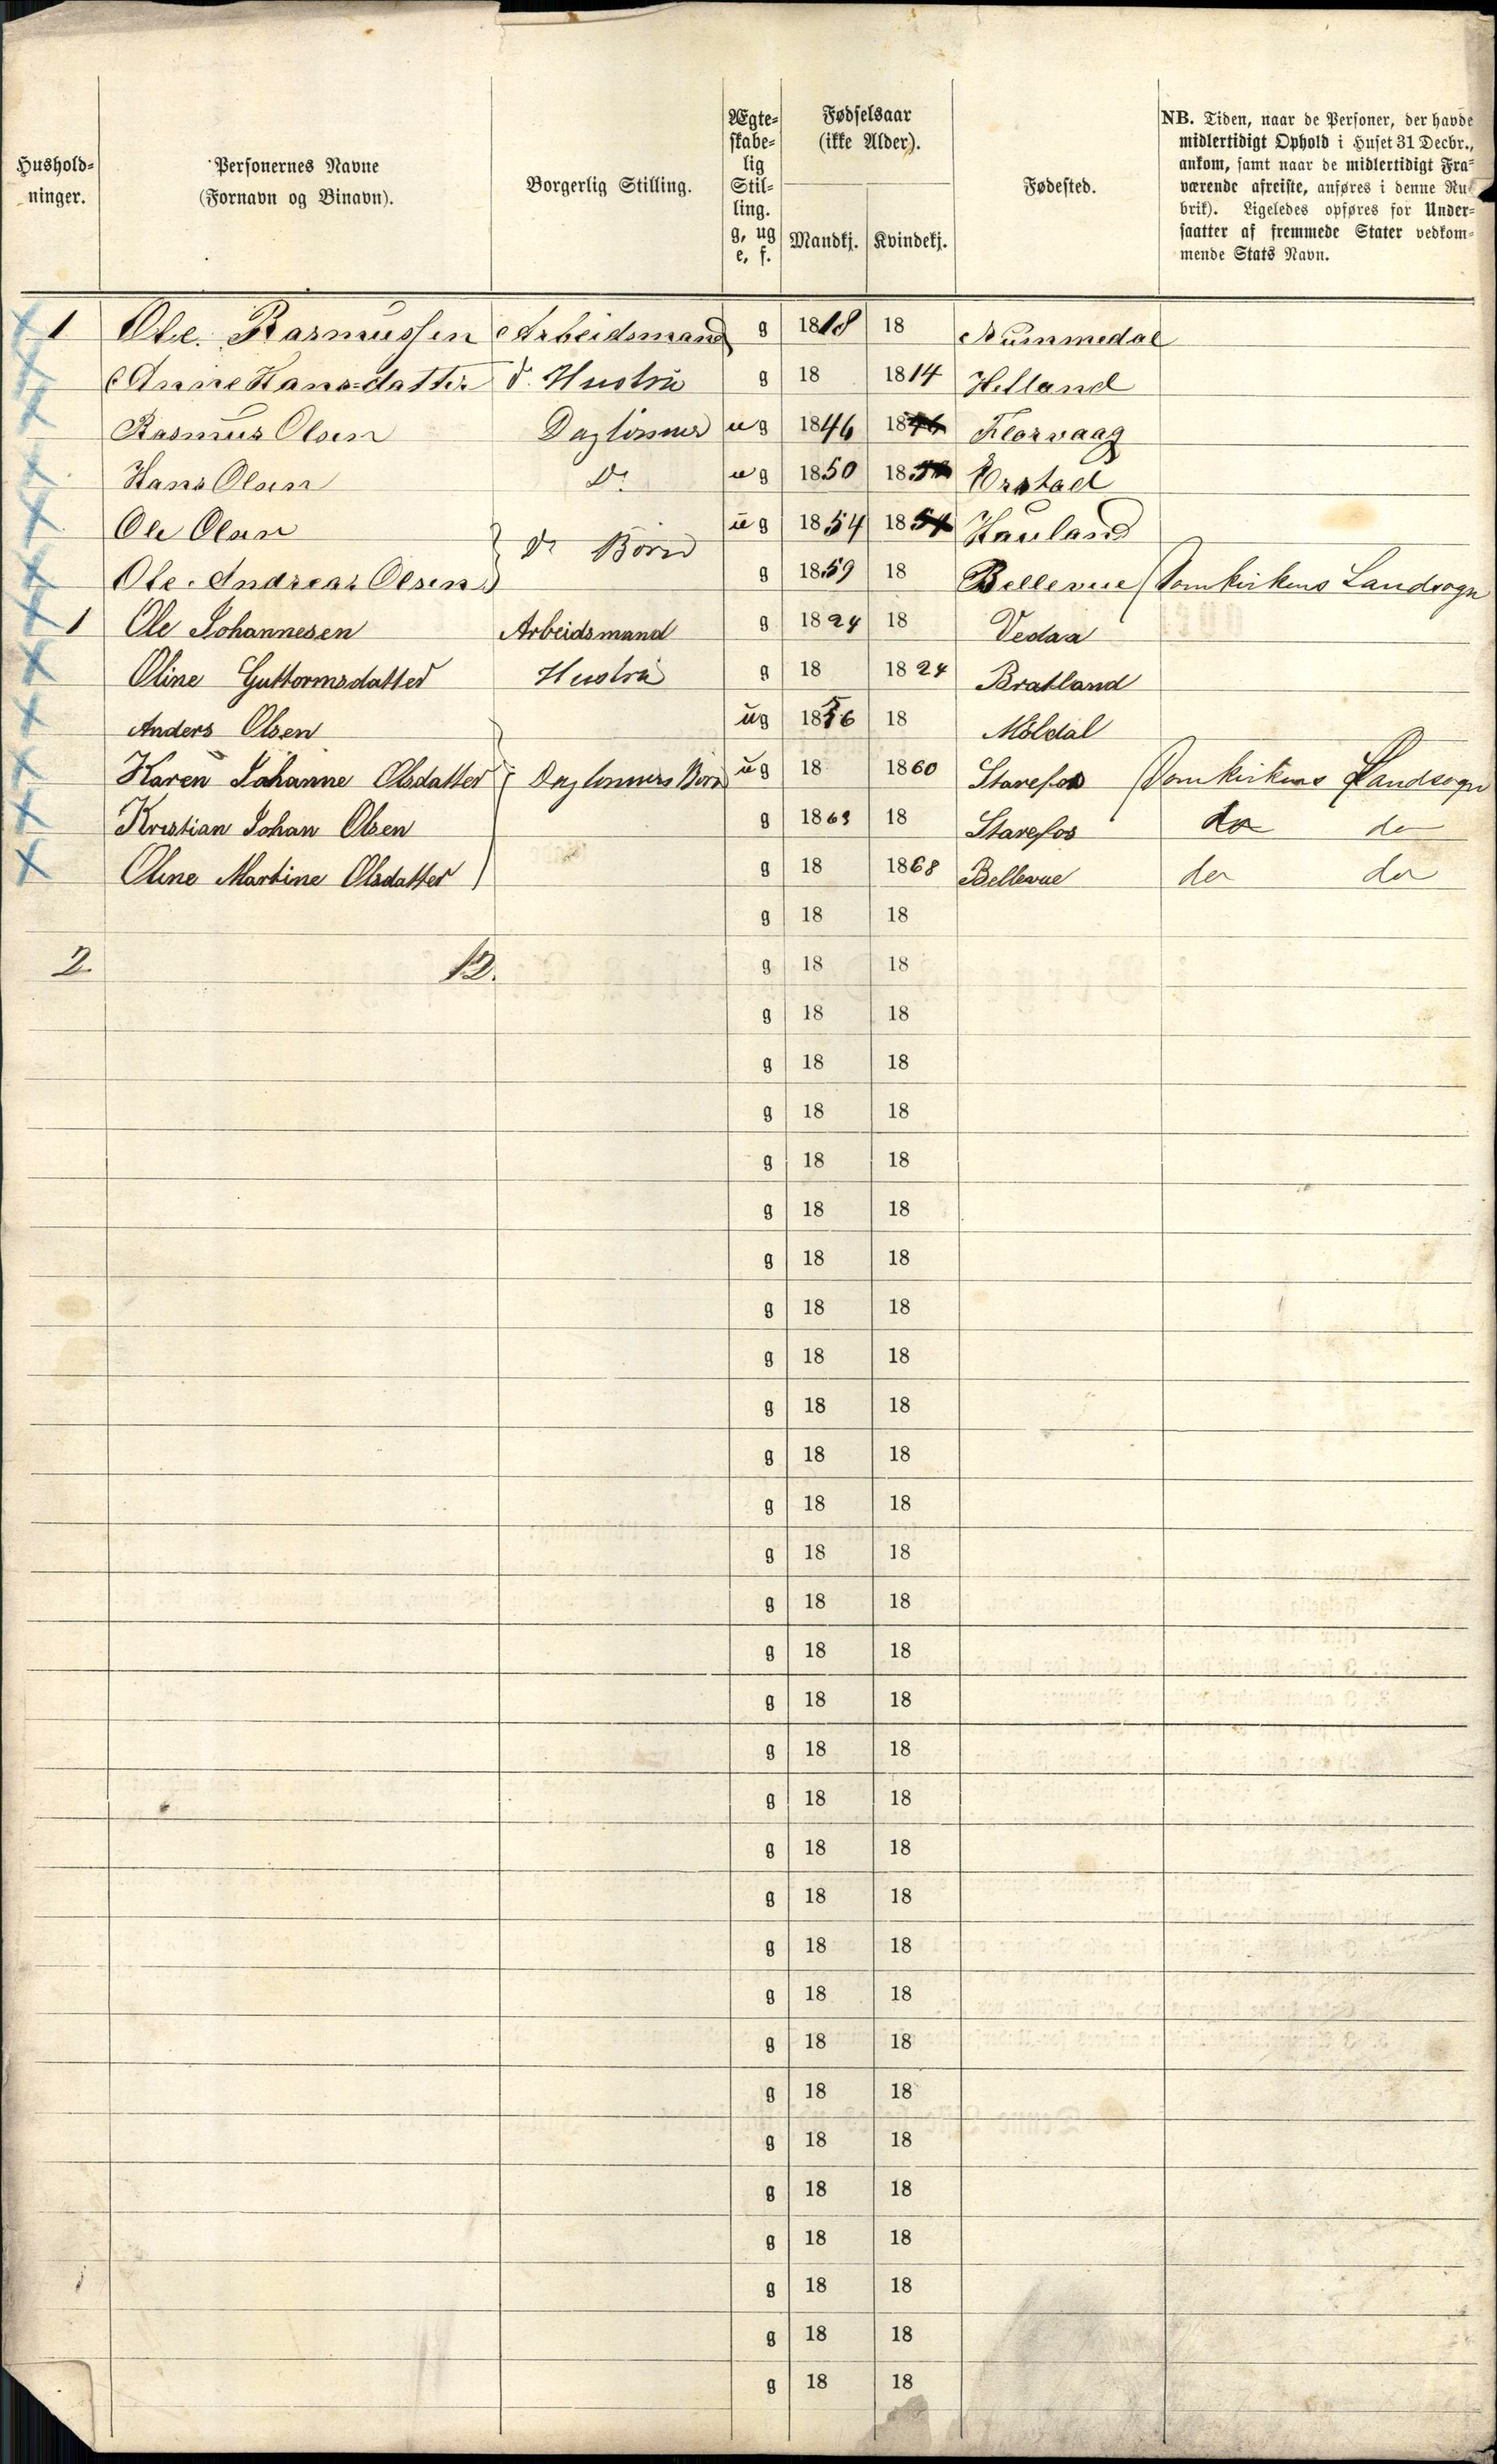 Hushold-
ninger.
Personernes Navne
(Fornavn og Binavn).
Borgerlig Stilling.
Ægte-
skabe-
lig
Stil-
ling.
g, ug
e, f.
Fødselsaar
(ikke Alder).
Mandkj. Kvindekj.
Fødested.
NB. Tiden, naar de Personer, der havde
midlertidigt Ophold i Huset 31 Decbr.,
ankom, samt naar de midlertidigt Fra-
værende afreiste, anføres i denne Ru-
brik). Ligeledes opføres for Under-
saatter af fremmede Stater vedkom-
mende Stats Navn.
1 Ole Rasmussen Arbeidsmand g 1818 18 Nummedal
Anne Hans=datter d. Hustru g 18 1814 Helland
Rasmus Olsen Daglönner ug 1846 1846 Florvaag
Hans Olsen Do ug 1850 1850 Örstad
Ole Olsen ug 1854 1854 Hauland
do Börn
Ole Andreas Olsen g 1859 18 Bellevue Domkirkens Landsogn
1 Ole Johannesen Arbeidsmand g 1824 18 Vedaa
Oline Guttormsdatter Hustru g 18 1824 Bratland
Anders Olsen ug 1856 18 Möldal
Karen Johanne Olsdatter Daglönners Börn ug 18 1860 Starefos Domkirkens Landsogn
Kristian Johan Olsen g 1863 18 Starefos do do
Oline Martine Olsdatter g 18 1868 Bellevue do do
g 18 18
2 12. g 18 18
g 18 18
g 18 18
g 18 18
g 18 18
g 18 18
g 18 18
g 18 18
g 18 18
g 18 18
g 18 18
g 18 18
g 18 18
g 18 18
g 18 18
g 18 18
g 18 18
g 18 18
g 18 18
g 18 18
g 18 18
g 18 18
g 18 18
g 18 18
g 18 18
g 18 18
g 18 18
g 18 18
g 18 18
g 18 18